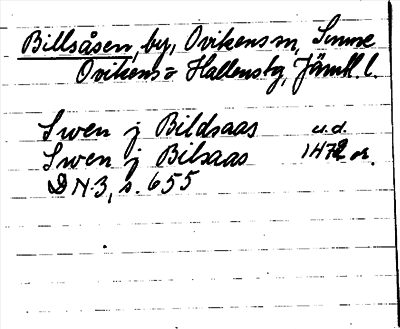 Billsåsen, by, Ovikens sn,
Ovikens o Hallens tg, Jämtl. l.
Swen j Bildsaas u.d.
Swen j Bilsaas 1472 or.
DN 3, s. 655